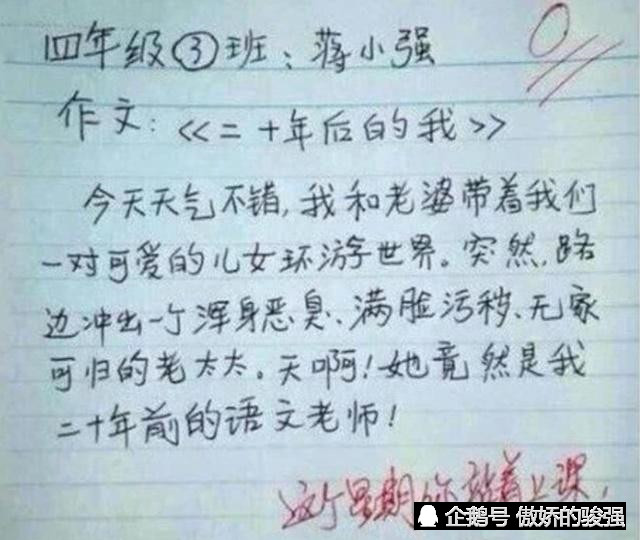 四年级③班:蒋小强
0
作文:《二十年后的我》
今天天气不错,我和老婆带着我们
一对可爱的儿女环游世界。突然,路
边冲出一个浑身恶臭、满脸污秽、无家
可归的老太太。天啊!她竟然是我
二十年前的语文老师!
这个星期你站着上课,
企鹅号 傲娇的骏强